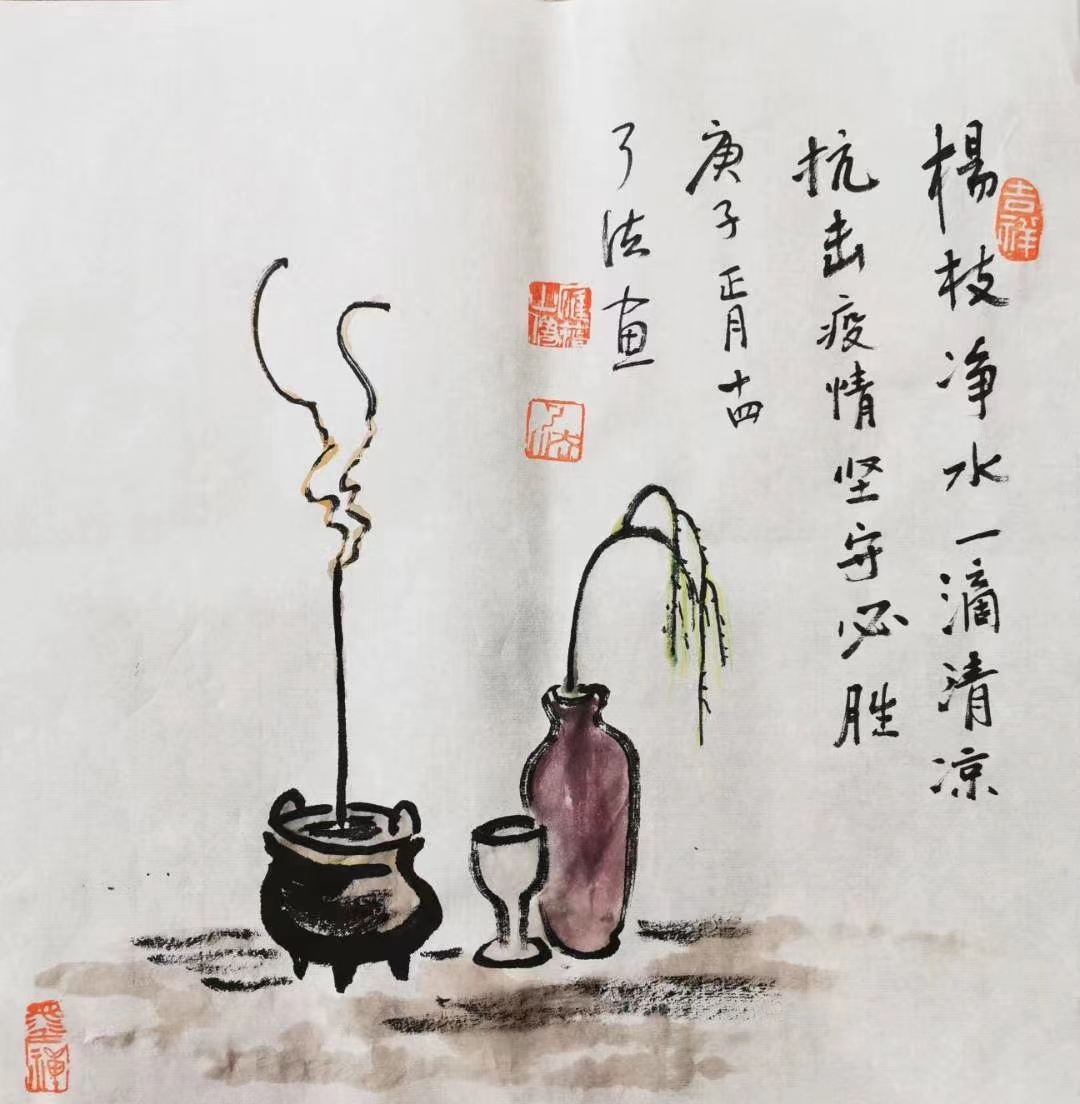 楊枝净水一滴清凉
抗击疫情坚守必胜
庚子正月十四
了法画
吉祥
了法